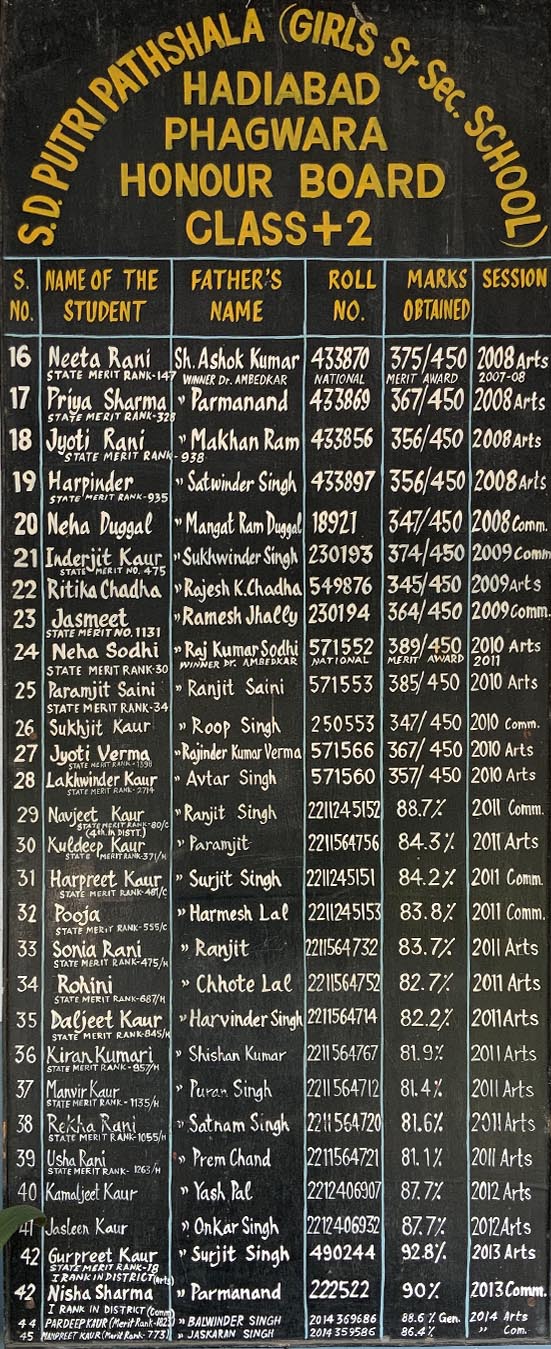 S.D. PUTRI PATHSHALA (GIRLS Sr Sec. SCHOOL)
HADIABAD
PHAGWARA
HONOUR BOARD
CLASS+2
S. NO. NAME OF THE STUDENT FATHER'S NAME ROLL NO. MARKS OBTAINED SESSION
16 Neeta Rani Sh. Ashok Kumar 433870 375/450 2008 Arts
STATE MERIT RANK-147 WINNER Dr. AMBEDKAR NATIONAL MERIT AWARD 2007-08
17 Priya Sharma " Parmanand 433869 367/450 2008 Arts
STATE MERIT RANK-328
18 Jyoti Rani " Makhan Ram 433856 356/450 2008 Arts
STATE MERIT RANK-938
19 Harpinder " Satwinder Singh 433897 356/450 2008 Arts
STATE MERIT RANK-935
20 Neha Duggal " Mangat Ram Duggal 18921 347/450 2008 Comm.
21 Inderjit Kaur " Sukhwinder Singh 230193 374/450 2009 Comm
STATE MERIT NO. 475
22 Ritika Chadha " Rajesh K.Chadha 549876 345/450 2009 Arts
23 Jasmeet " Ramesh Jhally 230194 364/450 2009 Comm.
STATE MERIT NO. 1131
24 Neha Sodhi " Raj Kumar Sodhi 571552 389/450 2010 Arts
STATE MERIT RANK-30 WINNER Dr. AMBEDKAR NATIONAL MERIT AWARD 2011
25 Paramjit Saini " Ranjit Saini 571553 385/450 2010 Arts
STATE MERIT RANK-34
26 Sukhjit Kaur " Roop Singh 250553 347/450 2010 Comm.
27 Jyoti Verma " Rajinder Kumar Verma 571566 367/450 2010 Arts
STATE MERIT RANK-1398
28 Lakhwinder Kaur " Avtar Singh 571560 357/450 2010 Arts
STATE MERIT RANK-2714
29 Navjeet Kaur " Ranjit Singh 2211245152 88.7% 2011 Comm.
STATE MERIT RANK-80/C
(4th. in DISTT.)
30 Kuldeep Kaur " Paramjit 2211564756 84.3% 2011 Arts
STATE MERIT RANK-371/H
31 Harpreet Kaur " Surjit Singh 2211245151 84.2% 2011 Comm.
STATE MERIT RANK-481/C
32 Pooja " Harmesh Lal 2211245153 83.8% 2011 Comm.
STATE MERIT RANK-555/C
33 Sonia Rani " Ranjit 2211564732 83.7% 2011 Arts
STATE MERIT RANK-475/H
34 Rohini " Chhote Lal 2211564752 82.7% 2011 Arts
STATE MERIT RANK-687/H
35 Daljeet Kaur " Harvinder Singh 2211564714 82.2% 2011 Arts
STATE MERIT RANK-845/H
36 Kiran Kumari " Shishan Kumar 2211564767 81.9% 2011 Arts
STATE MERIT RANK-957/H
37 Manvir Kaur " Puran Singh 2211564712 81.4% 2011 Arts
STATE MERIT RANK-1135/H
38 Rekha Rani " Satnam Singh 2211564720 81.6% 2011 Arts
STATE MERIT RANK-1055/H
39 Usha Rani " Prem Chand 2211564721 81.1% 2011 Arts
STATE MERIT RANK-1263/H
40 Kamaljeet Kaur " Yash Pal 2212406907 87.7% 2012 Arts
41 Jasleen Kaur " Onkar Singh 2212406932 87.7% 2012 Arts
42 Gurpreet Kaur " Surjit Singh 490244 92.8% 2013 Arts
STATE MERIT RANK-18
I RANK IN DISTRICT (Arts)
42 Nisha Sharma " Parmanand 222522 90% 2013 Comm.
I RANK IN DISTRICT (Comm)
44 PARDEEP KAUR (Merit Rank-182) " BALWINDER SINGH 2014369686 88.6% Gen. 2014 Arts
45 MANPREET KAUR (Merit Rank-773) " JASKARAN SINGH 2014359586 86.4% " Com.